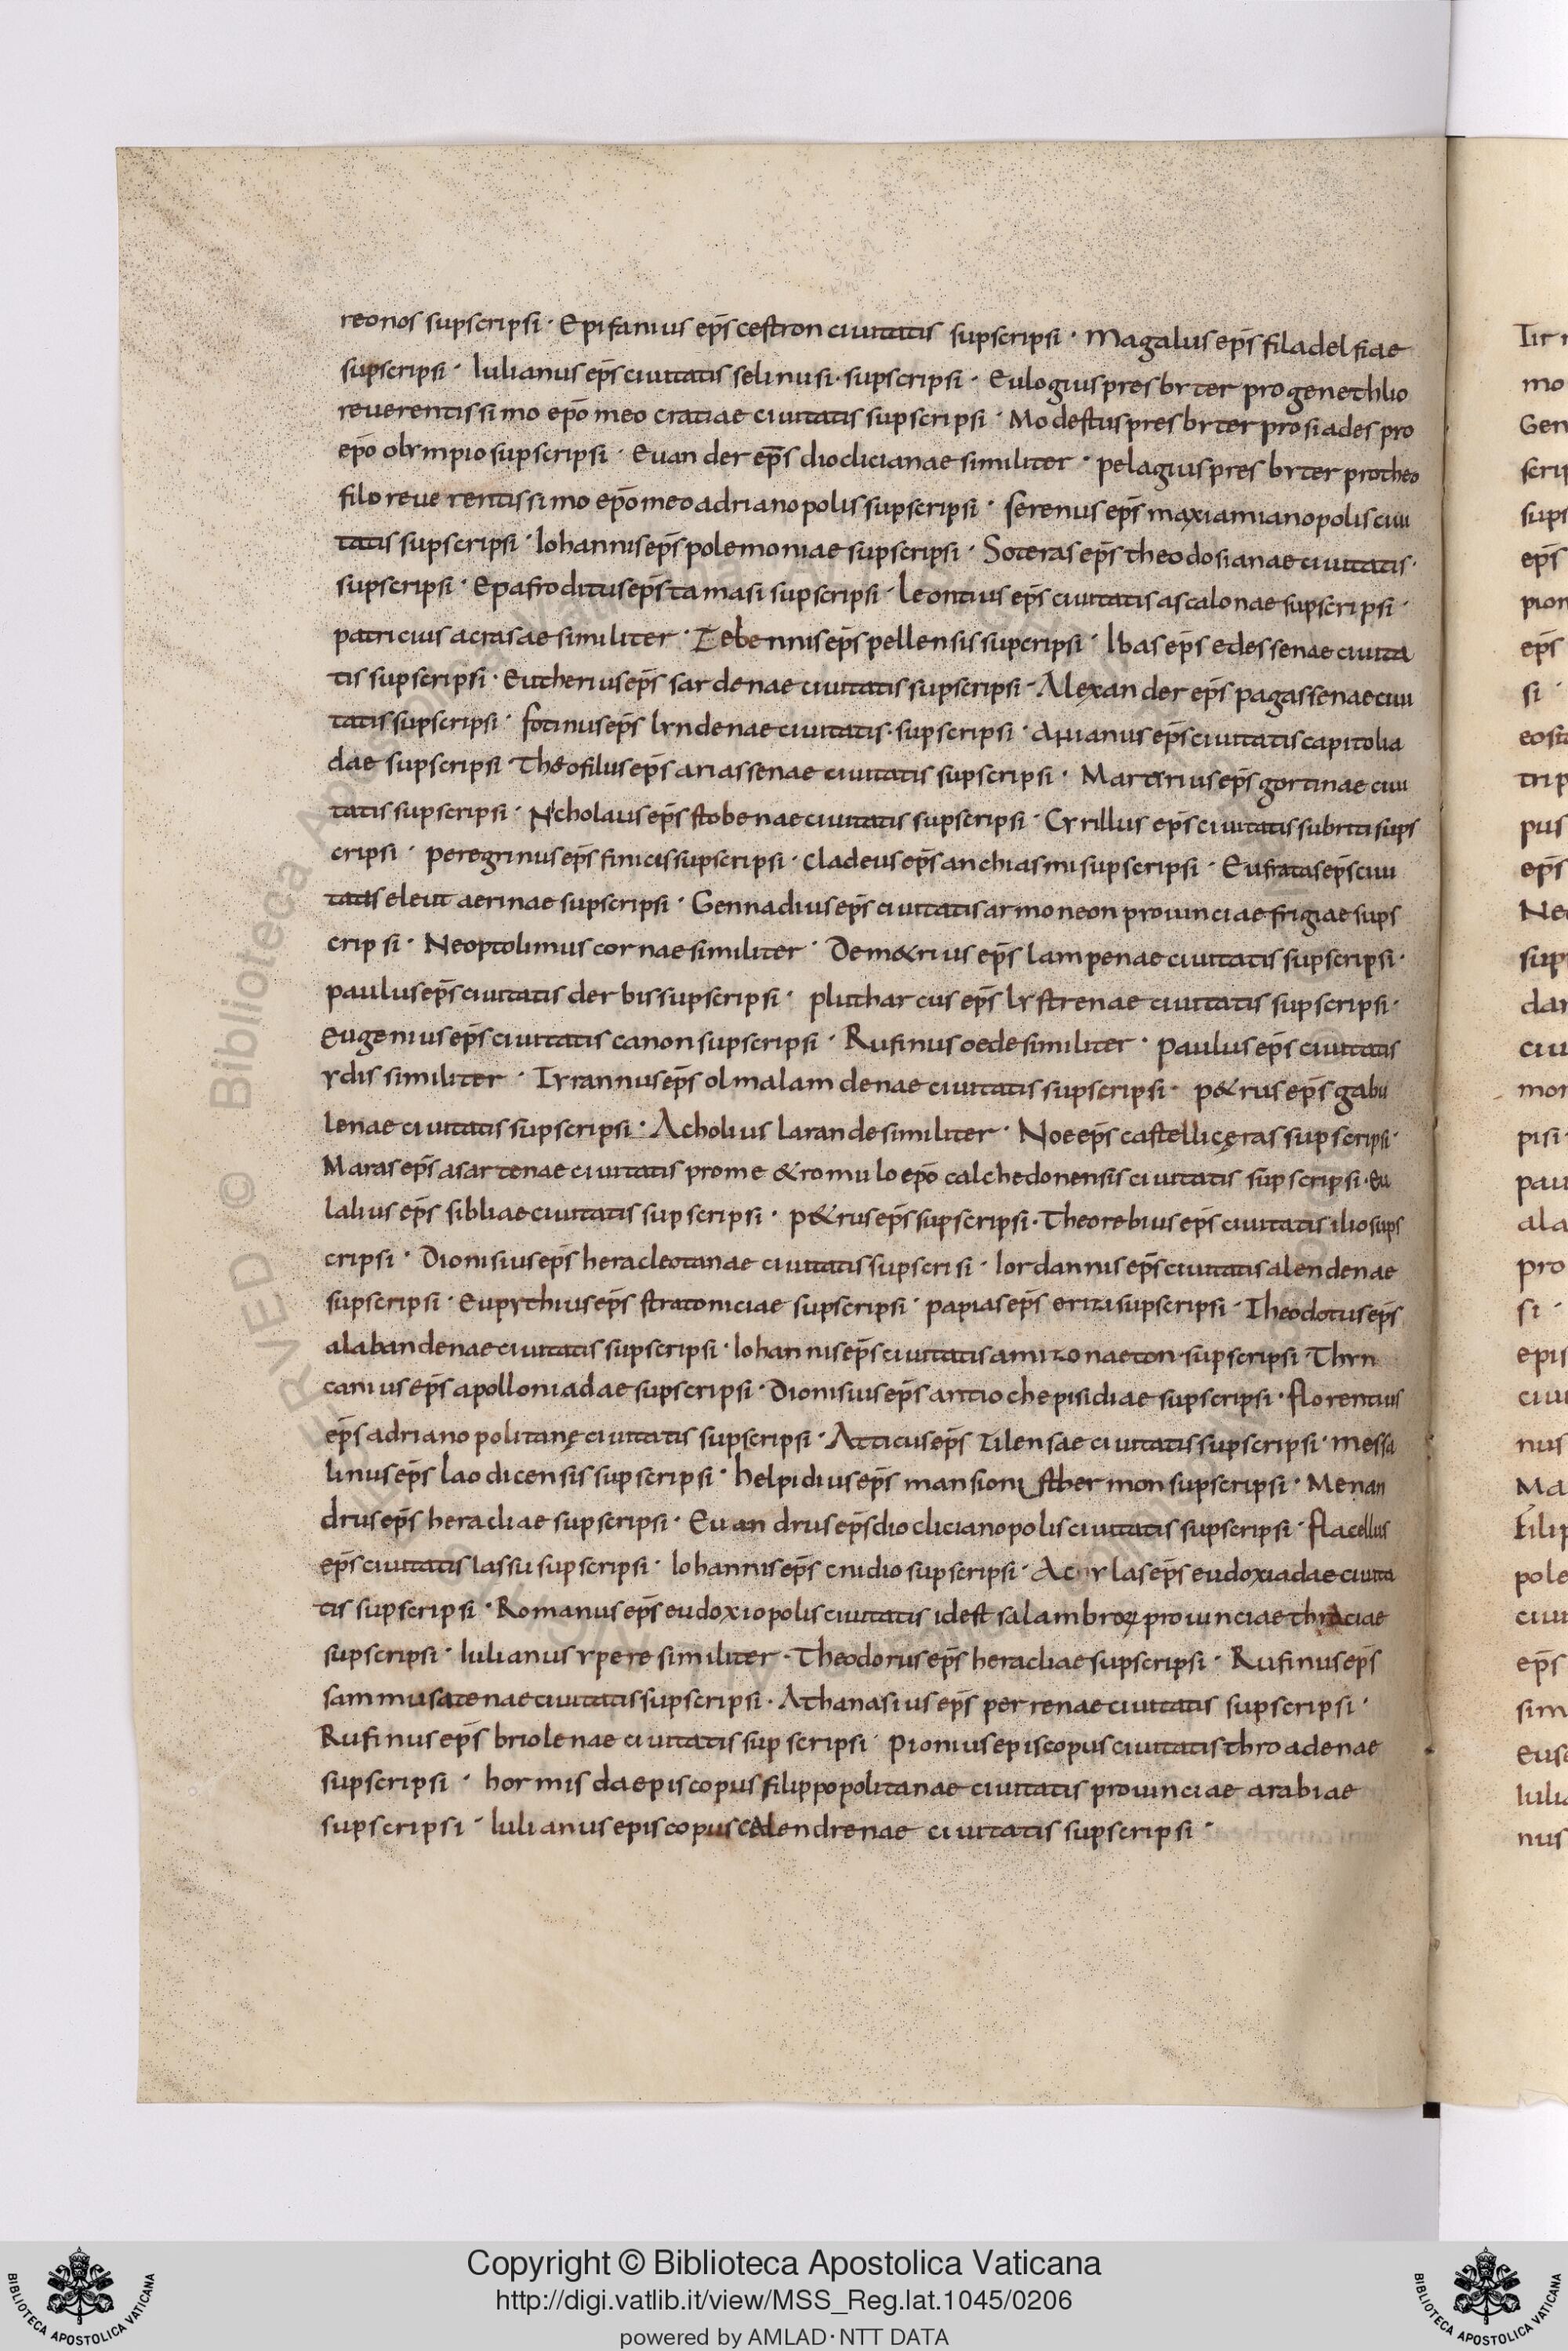 reonos supscripsi · Epifanius ep̄s cestron ciuitatis supscripsi · Magalus ep̄s filadelfiae
supscripsi · Iulianus ep̄s ciuitatis selinusi · supscripsi · Eulogius presbyter pro genethlio
reuerentissimo ep̄o meo cratiae ciuitatis supscripsi · Modestus presbyter pro siades pro
ep̄o olympio supscripsi · Euander ep̄s dioclicianae similiter · pelagius presbyter pro theo
filo reuerentissimo ep̄o meo adrianopolis supscripsi · serenus ep̄s maxiamianopolis ciui
tatis supscripsi · Iohannis ep̄s polemoniae supscripsi · Soteras ep̄s theodosianae ciuitatis ·
supscripsi · Epafroditus ep̄s tamasi supscripsi · leontius ep̄s ciuitatis ascalonae supscripsi ·
patricius acrasae similiter · Zebennis ep̄s pellensis supcripsi · Ibas ep̄s edessenae ciuita
tis supscripsi · Eutherius ep̄s sardenae ciuitatis supscripsi · Alexander ep̄s pagassenae ciui
tatis supscripsi · fotinus ep̄s lyndenae ciuitatis · supscripsi · ep̄s ciuitatis capitolia
dae supscripsi Theofilus ep̄s ariassenae ciuitatis supscripsi · Martyrius ep̄s gortinae ciui
tatis supscripsi · Nicholaus ep̄s stobenae ciuitatis supscripsi · Cyrillus ep̄s ciuitatis subriti sups
cripsi · peregrinus ep̄s finicis supscripsi · cladeus ep̄s anchiasmi supscripsi · Eufratas ep̄s ciui
tatis eleut aerinae supscripsi · Gennadius ep̄s ciuitatis armoneon prouinciae frigiae sups
cripsi · Neoptolimus cornae similiter · Demetrius ep̄s lampenae ciuitatis supscripsi ·
paulus ep̄s ciuitatis derbis supscripsi · plutharcus ep̄s lystrenae ciuitatis supscripsi ·
Eugenius ep̄s ciuitatis canon supscripsi · Rufinus oede similiter · paulus ep̄s ciuitatis
ydis similiter · Tyrannus ep̄s olmalamdenae ciuitatis supscripsi · p&rus ep̄s gabu
lenae ciuitatis supscripsi · Acholius larande similiter · Noe ep̄s castelli cęras supscripsi ·
Maras ep̄s asartenae ciuitatis pro me & romulo ep̄o calchedonensis ciuitatis supscripsi · Eu
lalius ep̄s sibliae ciuitatis supscripsi · p&rus ep̄s supscripsi · Theorebius ep̄s ciuitatis ilio sups
cripsi · Dionisius ep̄s heracleotanae ciuitatis supscrisi · Iordannis ep̄s ciuitatis alendenae
supscripsi · Eupythius ep̄s stratoniciae supscripsi · papias ep̄s eriti supscripsi · Theodotus ep̄s
alabandenae ciuitatis supscripsi · Iohannis ep̄s ciuitatis amizonaeton · supscripsi Thyn
canius ep̄s apolloniadae supscripsi · Dionisius ep̄s antioche pisidiae supscripsi · florentius
ep̄s adrianopolitanę ciuitatis supscripsi · Atticus ep̄s zilensae ciuitatis supscripsi · messa
linus ep̄s laodicensis supscripsi · helpidius ep̄s mansioni sthermon supscripsi · Menan
drus ep̄s heracliae supscripsi · Euandrus ep̄s dioclicianopolis ciuitatis supscripsi · flacellus
ep̄s ciuitatis Iassii supscripsi · Iohannis ep̄s cnidio supscripsi · ep̄s eudoxiadae ciuita
tis supscripsi · Romanus ep̄s eudoxiopolis ciuitatis idest salambroꝝ prouinciae thraciae
supscripsi · Iulianus ypere similiter · Theodorus ep̄s heracliae supscripsi · Rufinus ep̄s
sammusatenae ciuitatis supscripsi · Athanasius ep̄s perrenae ciuitatis supscripsi ·
Rufinus ep̄s briolenae ciuitatis supscripsi · pionius episcopus ciuitatis throadenae
supscripsi · hormisda episcopus filippopolitanae ciuitatis prouinciae arabiae
supscripsi · Iulianus episcopus celendrenae ciuitatis supscripsi ·
Copyright © Biblioteca Apostolica Vaticana
http://digi.vatlib.it/view/MSS_Reg.lat.1045/0206
powered by AMLAD·NTT DATA